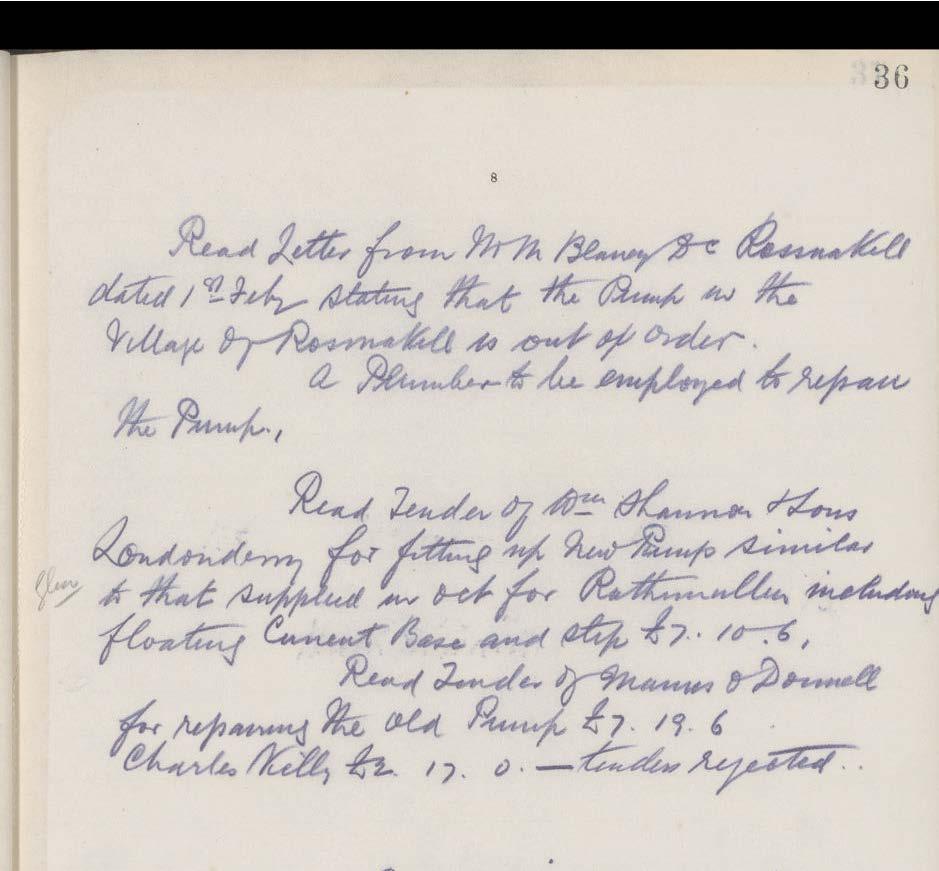 36
8
Read Letter from Mr M Blaney DC Rossnakill
dated 1st Feby stating that the Pump in the
Village of Rosnakill is out of order.
A Plumber to be employed to repair
the Pump.,
Read Tender of Wm Shannon & Sons
Londonderry for fitting up New Pump similar
to that supplied in Oct for Rathmullen including
floating Cement Base and step £7. 10. 6,
Read Tender of Manus O Donnell
for repairing the old Pump £7. 19. 6
Charles Kelly £2. 17. 0. — tenders rejected..